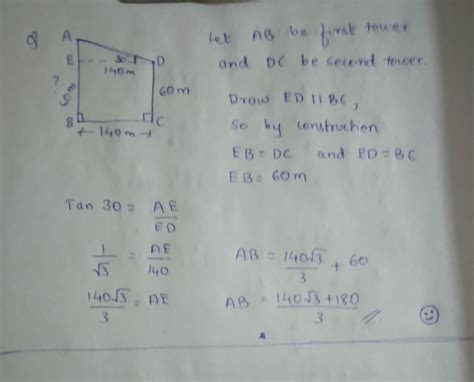 Q
A
E
30°
D
140m
?
60m
60m
B
C
140m
Let AB be first tower
and DC be second tower.
Draw ED || BC,
so by construction
EB = DC and ED = BC
EB = 60m.
Tan 30 = AE/ED
1/√3 = AE/140
140√3/3 = AE
AB = 140√3/3 + 60
AB = 140√3+180/3